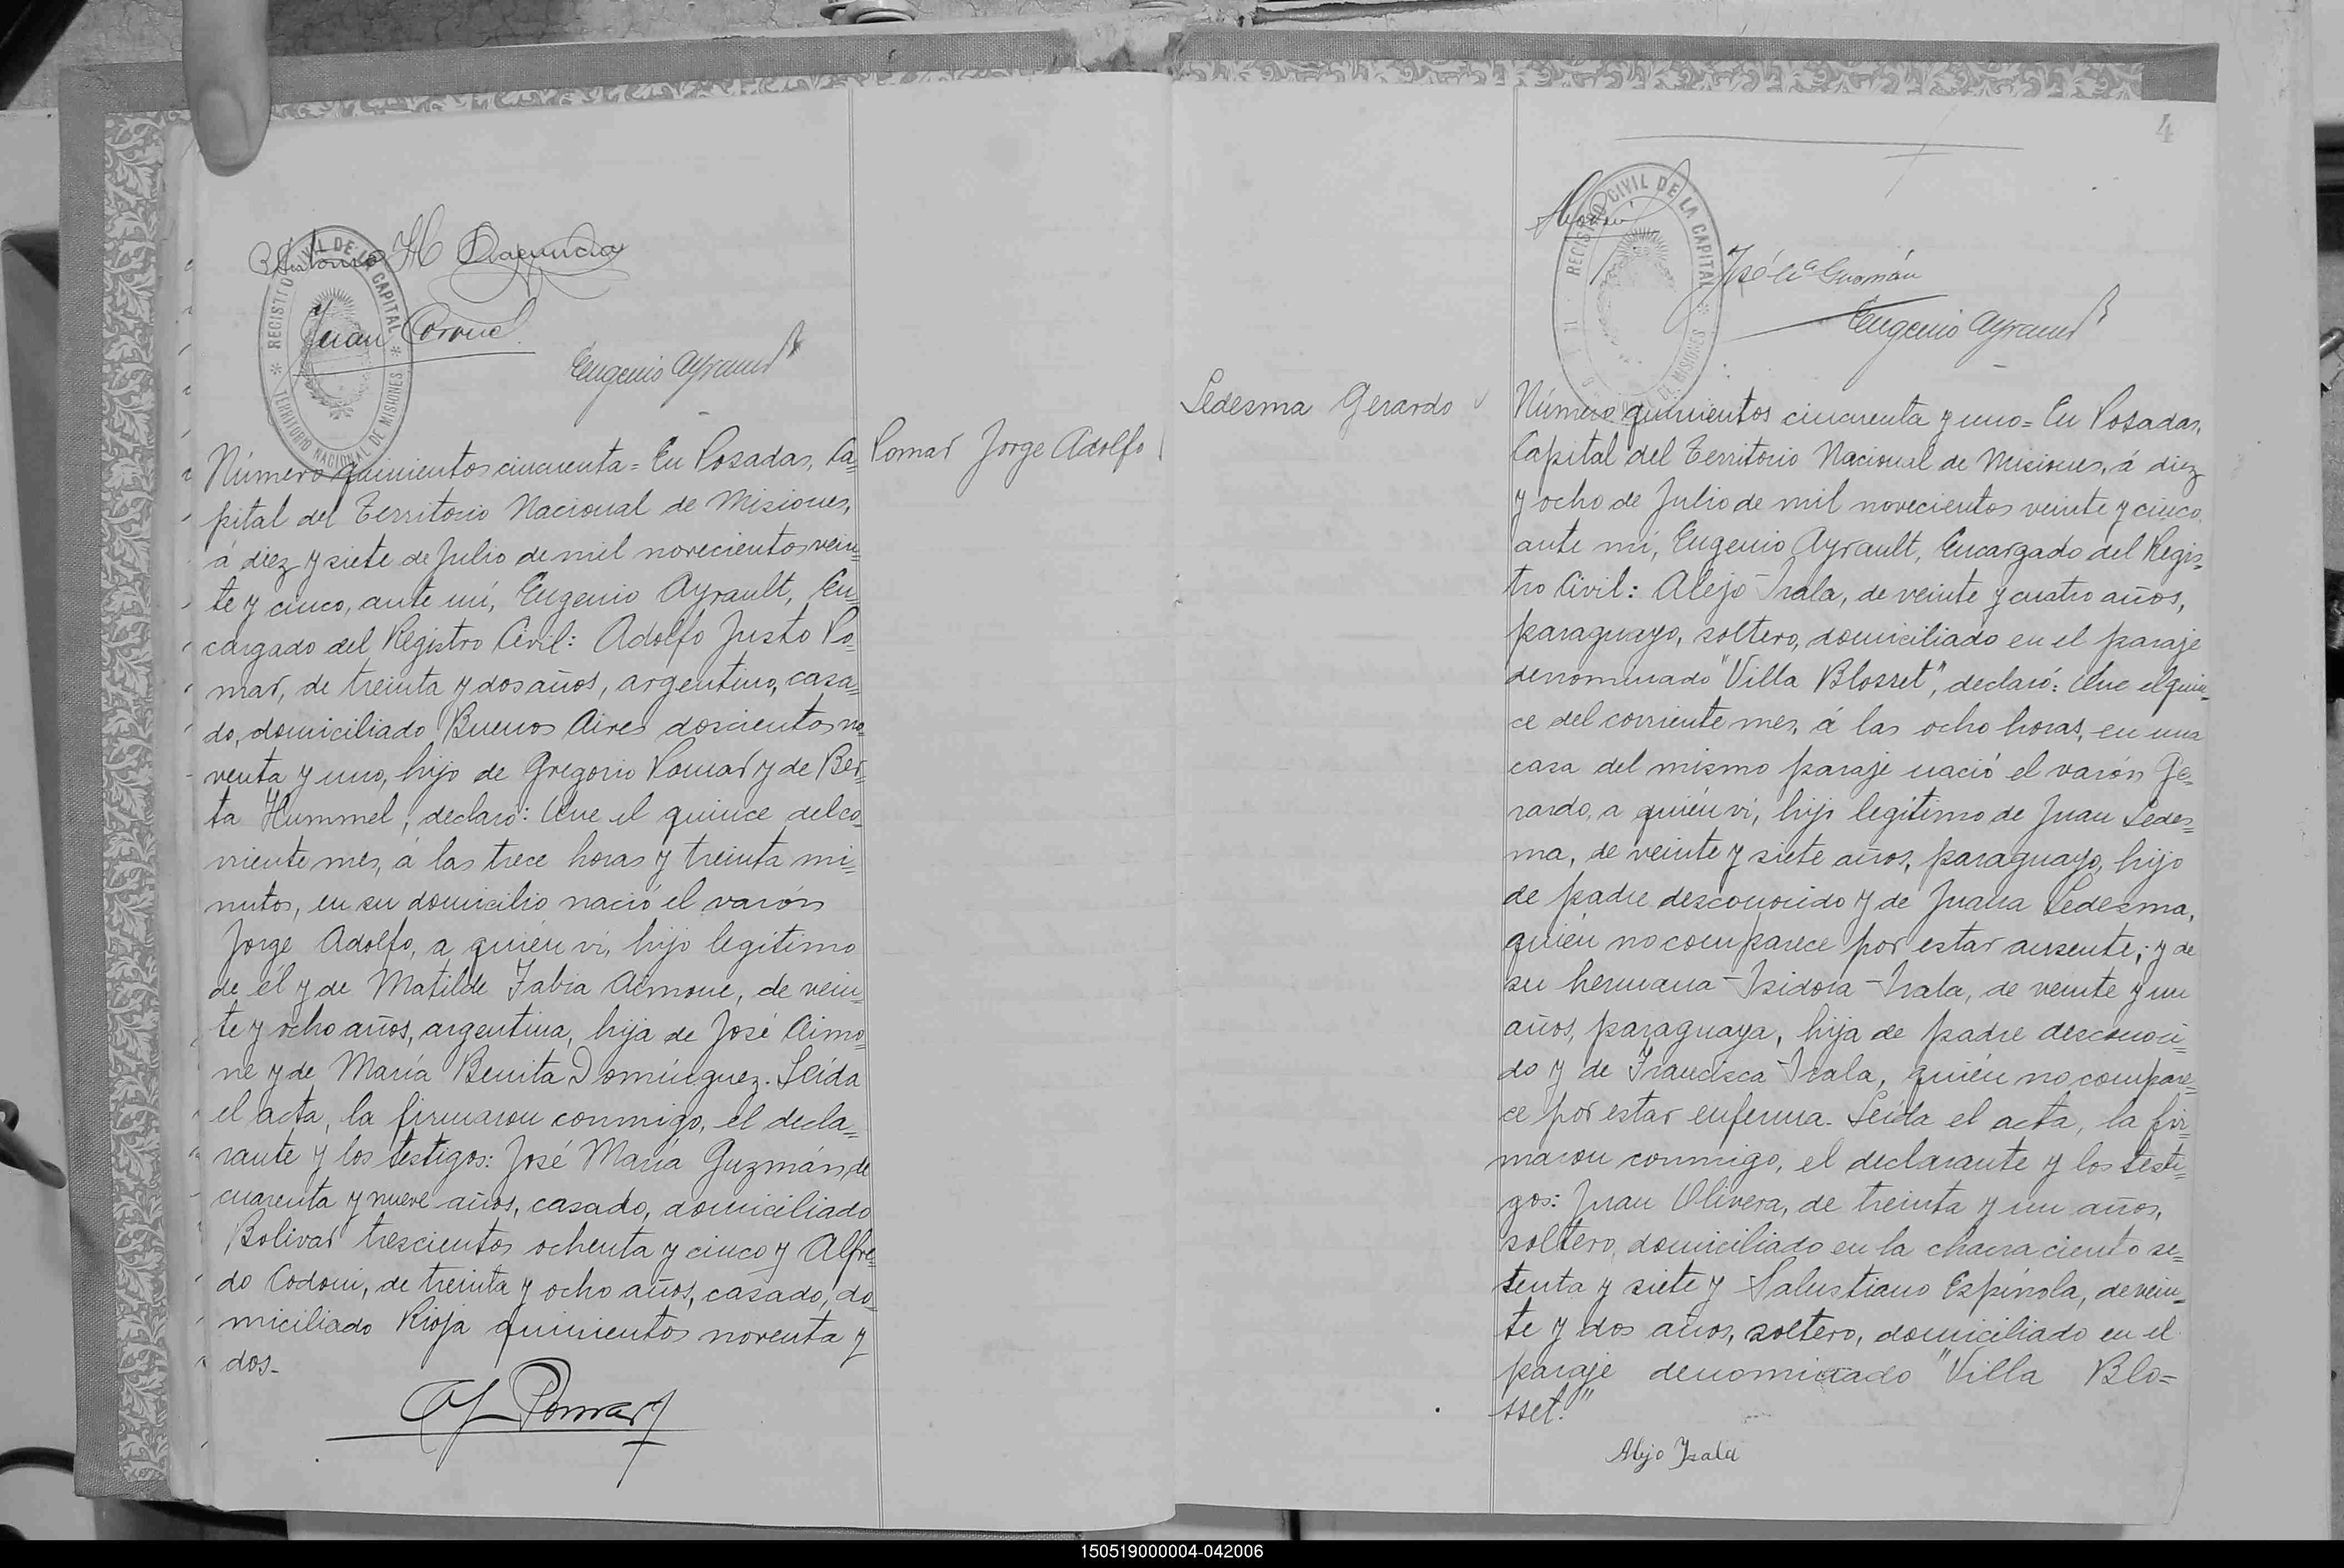 Antonio H
REGISTRO CIVIL DE LA CAPITAL
TERRITORIO NACIONAL DE MISIONES
Juan
Eugenio Ayrault
Pomar Jorge Adolfo
Número quinientos cincuenta = En Posadas, Ca=
pital del Territorio Nacional de Misiones,
á diez y siete de Julio de mil novecientos vein=
te y cinco, ante mí, Eugenio Ayrault, En=
cargado del Registro Civil: Adolfo Justo Po=
mar, de treinta y dos años, argentino, casa=
do, domiciliado Buenos Aires doscientos no=
venta y uno, hijo de Gregorio Pomar y de Ber=
ta Hummel, declaró: Que el quince del co=
rriente mes, á las trece horas y treinta mi=
nutos, en su domicilio nació el varón
Jorge Adolfo, a quién ví, hijo legítimo
de él y de Matilde Fabia Aimone, de vein=
te y ocho años, argentina, hija de José Aimo=
ne y de María Benita Domínguez. Leída
el acta, la firmaron conmigo, el decla=
rante y los testigos: José María Guzmán, de
cuarenta y nueve años, casado, domiciliado
Bolivar trescientos ochenta y cinco y Alfre=
do Codoni, de treinta y ocho años, casado, do=
miciliado Rioja quinientos noventa y
dos.
AJ Pomar
4
REGISTRO CIVIL DE LA CAPITAL
DE MISIONES
José Ma Guzmán
Eugenio Ayrault
Ledesma Gerardo
Número quinientos cincuenta y uno = En Posadas,
Capital del Territorio Nacional de Misiones, á diez
y ocho de Julio de mil novecientos veinte y cinco,
ante mí, Eugenio Ayrault, Encargado del Regis=
tro Civil: Alejo Irala, de veinte y cuatro años,
paraguayo, soltero, domiciliado en el paraje
denominado "Villa Blosset", declaró: Que el quin=
ce del corriente mes, á las ocho horas, en una
casa del mismo paraje nació el varón Ge=
rardo, a quién ví, hijo legítimo de Juan Ledes=
ma, de veinte y siete años, paraguayo, hijo
de padre desconocido y de Juana Ledesma,
quién no comparece por estar ausente; y de
su hermana Isidora Irala, de veinte y un
años, paraguaya, hija de padre desconoci=
do y de Francisca Irala, quién no compare=
ce por estar enferma. Leída el acta, la fir=
maron conmigo, el declarante y los testi=
gos: Juan Olivera, de treinta y un años,
soltero, domiciliado en la chacra ciento se=
tenta y siete y Salustiano Espínola, de vein=
te y dos años, soltero, domiciliado en el
paraje denominado "Villa Blo=
sset."
Alejo Irala
150519000004-042006